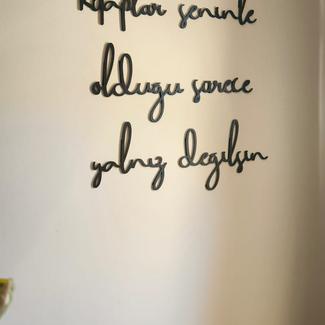 kitaplar seninle
olduğu sürece
yalnız değilsin